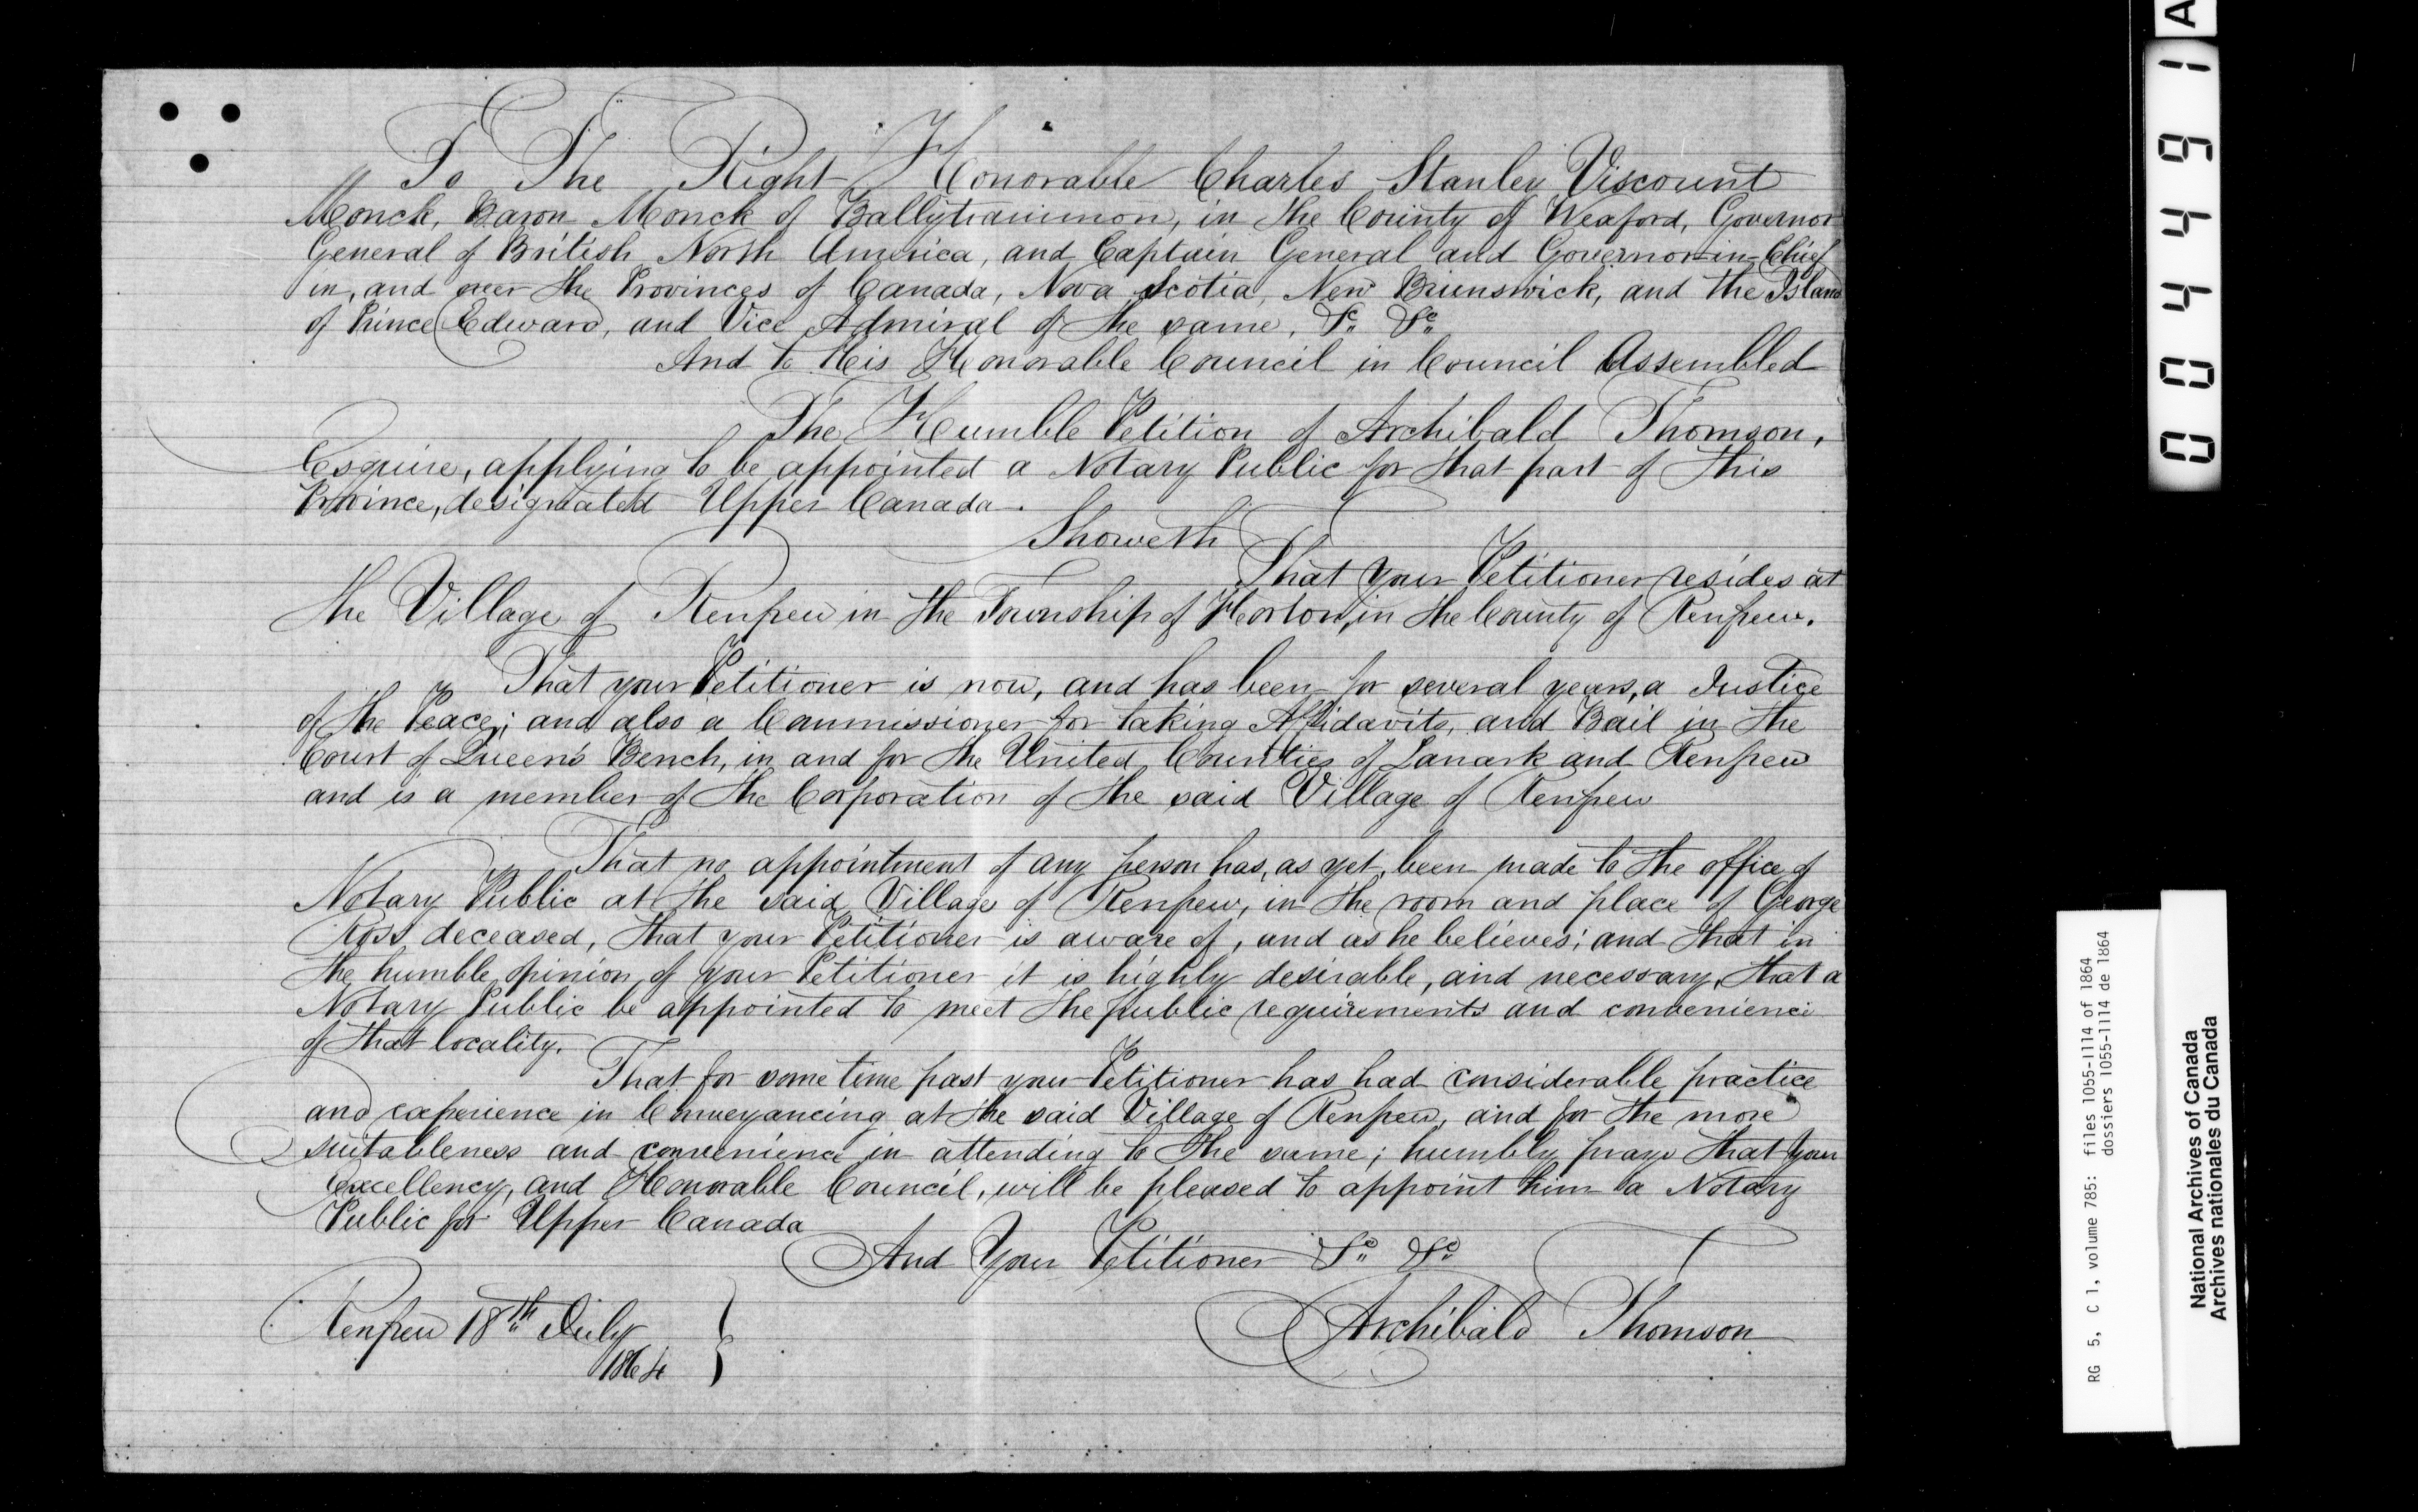 To The Right Honorable Charles Stanley Viscount
Monck, Baron Monck of Ballytrammon, in the County of Wexford, Governor
General of British North America, and Captain General and Governor-in-Chief
in, and over the Provinces of Canada, Nova Scotia, New Brunswick, and the Island
of Prince Edward, and Vice Admiral of the same, &c. &c.
And to His Honorable Council in Council Assembled
The Humble Petition of Archibald Thomson,
Esquire, applying to be appointed a Notary Public for that part of this
Province, designated Upper Canada.
Showeth
That your Petitioner resides at
the Village of Renfrew in the Township of Horton, in the County of Renfrew.
That your Petitioner is now, and has been for several years, a Justice
of the Peace; and also a Commissioner for taking Affidavits, and Bail in the
Court of Queen's Bench, in and for the United Counties of Lanark and Renfrew
and is a member of the Corporation of the said Village of Renfrew
That no appointment of any person has, as yet, been made to the office of
Notary Public at the said Village of Renfrew, in the room and place of George
Ross, deceased, that your Petitioner is aware of, and as he believes; and that in
the humble opinion of your Petitioner it is highly desirable, and necessary, that a
Notary Public be appointed to meet the public requirements and convenience
of that locality.
That for some time past your Petitioner has had considerable practice
and experience in Conveyancing at the said Village of Renfrew, and for the more
suitableness and convenience in attending to the same; humbly prays that your
Excellency, and Honorable Council, will be pleased to appoint him a Notary
Public for Upper Canada
And Your Petitioner &c. &c.
Renfrew 18th July
1864
Archibald Thomson
004491
A
RG 5, C 1, volume 785: files 1055-1114 of 1864
dossiers 1055-1114 de 1864
National Archives of Canada
Archives nationales du Canada